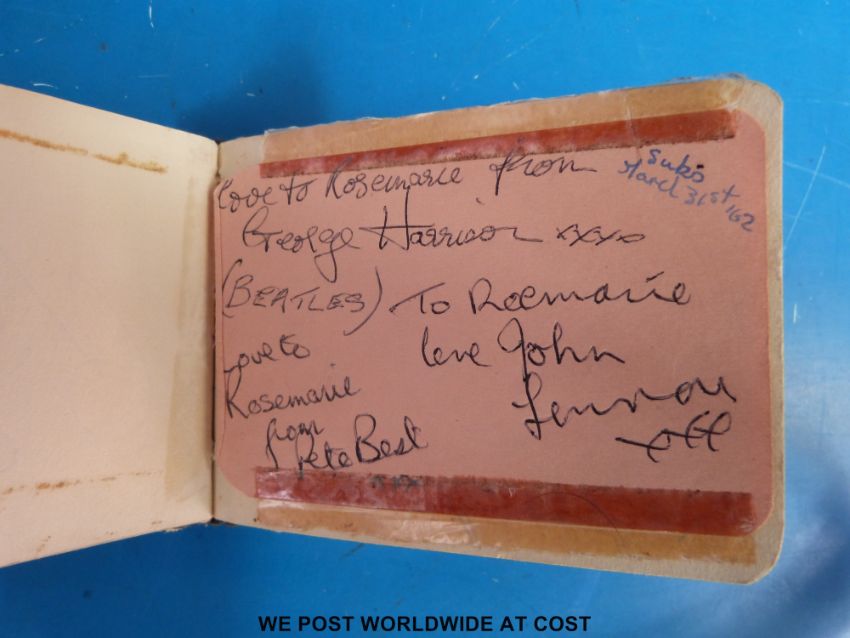 Love to Rosemarie from
George Harrison xxxx
(BEATLES)
Subs
March 31st/62
To Rosemarie
love John
Lennon
Love to
Rosemarie
from
Pete Best
xxx
WE POST WORLDWIDE AT COST